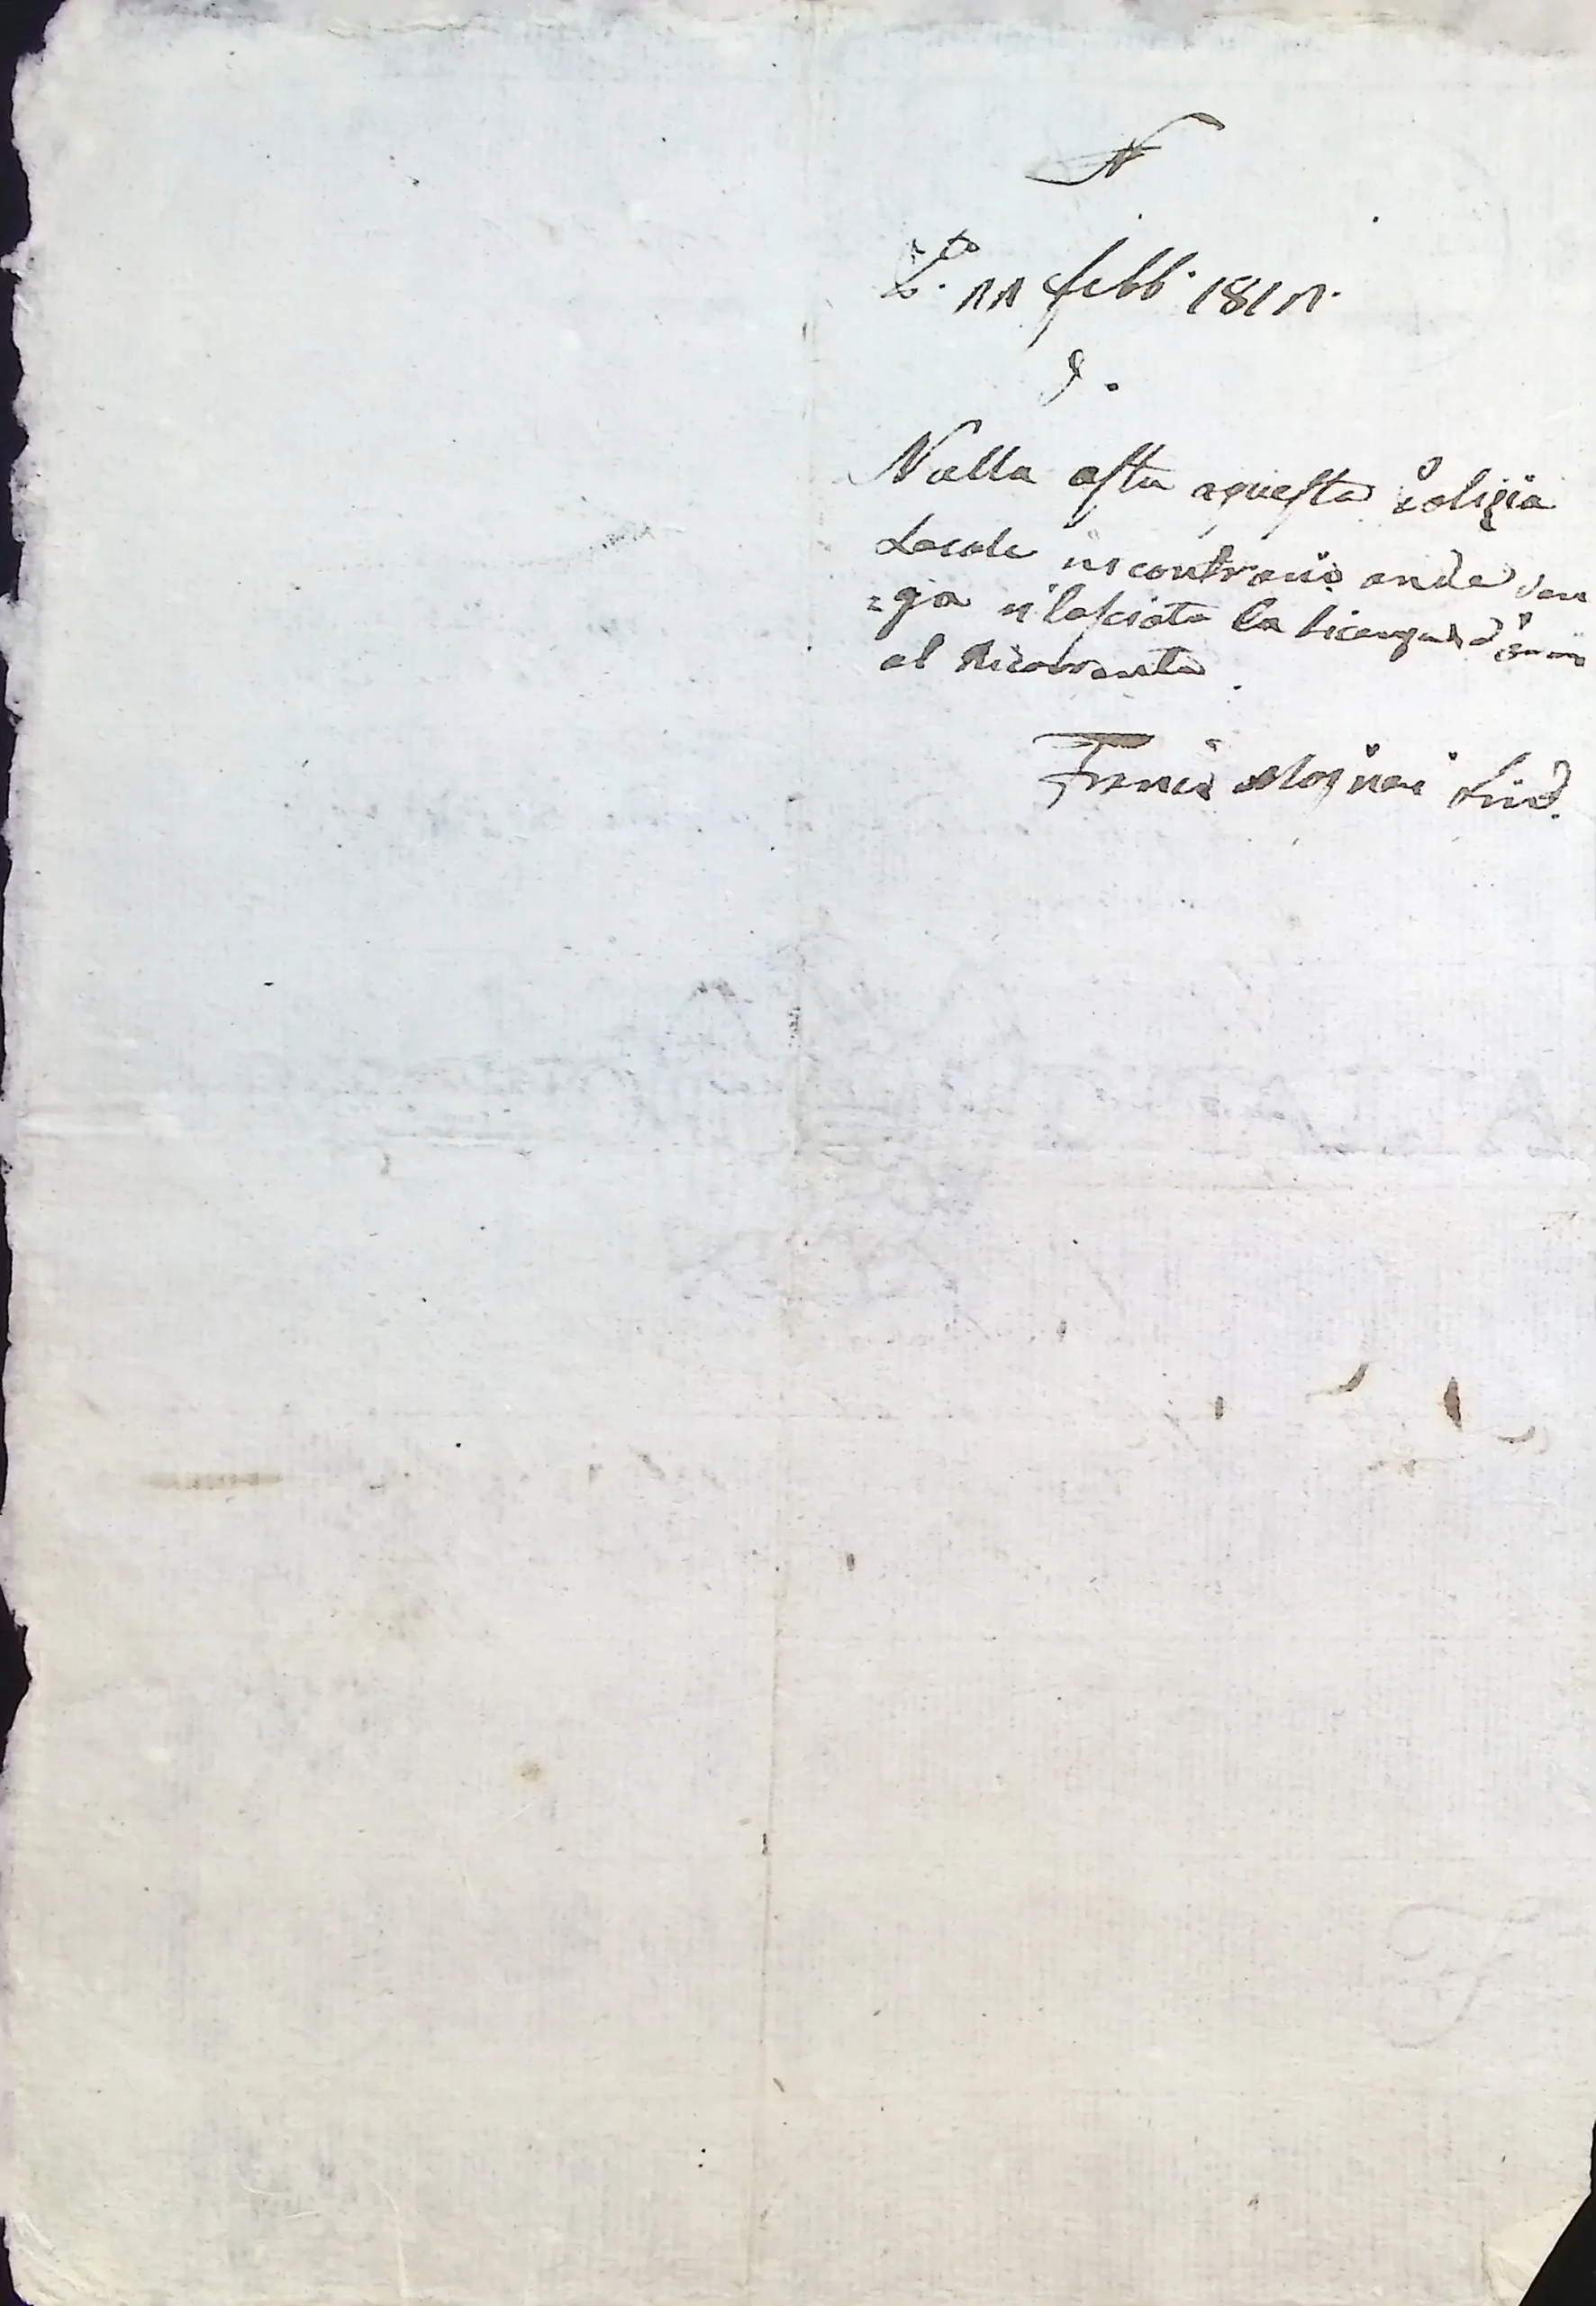 N
11 Febb. 181
Nulla osta a questa Polizia
Locale in contrario onde ven
=ga rilasciata la Licenza d'
al Ricorrente
Sind.